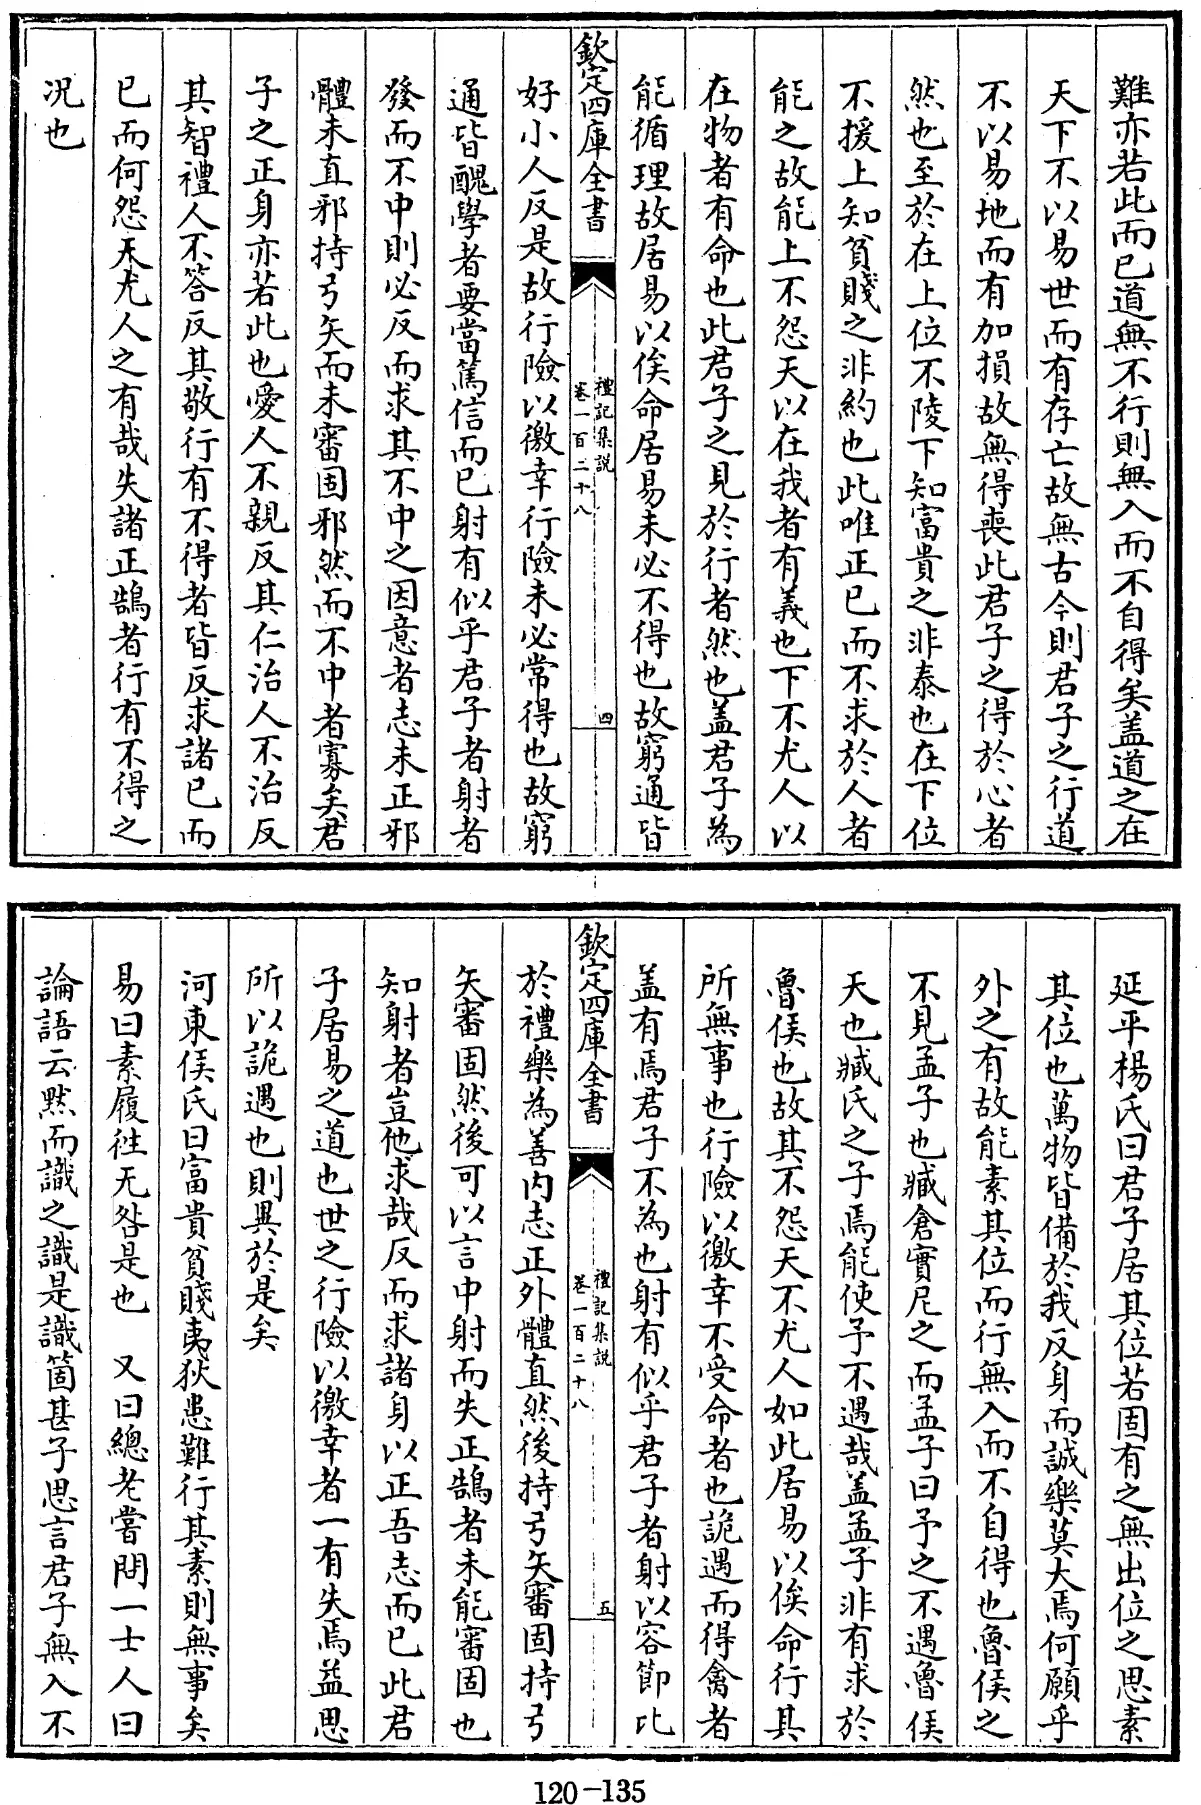 難亦若此而已道無不行則無入而不自得矣盖道之在
天下不以易世而有存亡故無古今則君子之行道
不以易地而有加損故無得喪此君子之得於心者
然也至於在上位不陵下知富貴之非泰也在下位
不援上知貧賤之非約也此唯正已而不求於人者
能之故能上不怨天以在我者有義也下不尤人以
在物者有命也此君子之見於行者然也盖君子為
能循理故居易以俟命居易未必不得也故窮通皆
欽定四庫全書
禮記集説
卷一百二十八
四
好小人反是故行險以徼幸行險未必常得也故窮
通皆醜學者要當篤信而已射有似乎君子者射者
發而不中則必反而求其不中之因意者志未正邪
體未直邪持弓矢而未審固邪然而不中者寡矣君
子之正身亦若此也愛人不親反其仁治人不治反
其智禮人不答反其敬行有不得者皆反求諸已而
已而何怨天尤人之有哉失諸正鵠者行有不得之
况也
延平楊氏曰君子居其位若固有之無出位之思素
其位也萬物皆備於我反身而誠樂莫大焉何願乎
外之有故能素其位而行無入而不自得也魯侯之
不見孟子也臧倉實尼之而孟子曰予之不遇魯侯
天也臧氏之子焉能使予不遇哉盖孟子非有求於
魯侯也故其不怨天不尤人如此居易以俟命行其
所無事也行險以徼幸不受命者也詭遇而得禽者
盖有焉君子不為也射有似乎君子者射以容節比
欽定四庫全書
禮記集説
卷一百二十八
五
於禮樂為善内志正外體直然後持弓矢審固持弓
矢審固然後可以言中射而失正鵠者未能審固也
知射者豈他求哉反而求諸身以正吾志而已此君
子居易之道也世之行險以徼幸者一有失焉益思
所以詭遇也則異於是矣
河東侯氏曰富貴貧賤夷狄患難行其素則無事矣
易曰素履徃无咎是也　又曰總老嘗問一士人曰
論語云黙而識之識是識箇甚子思言君子無入不
120-135